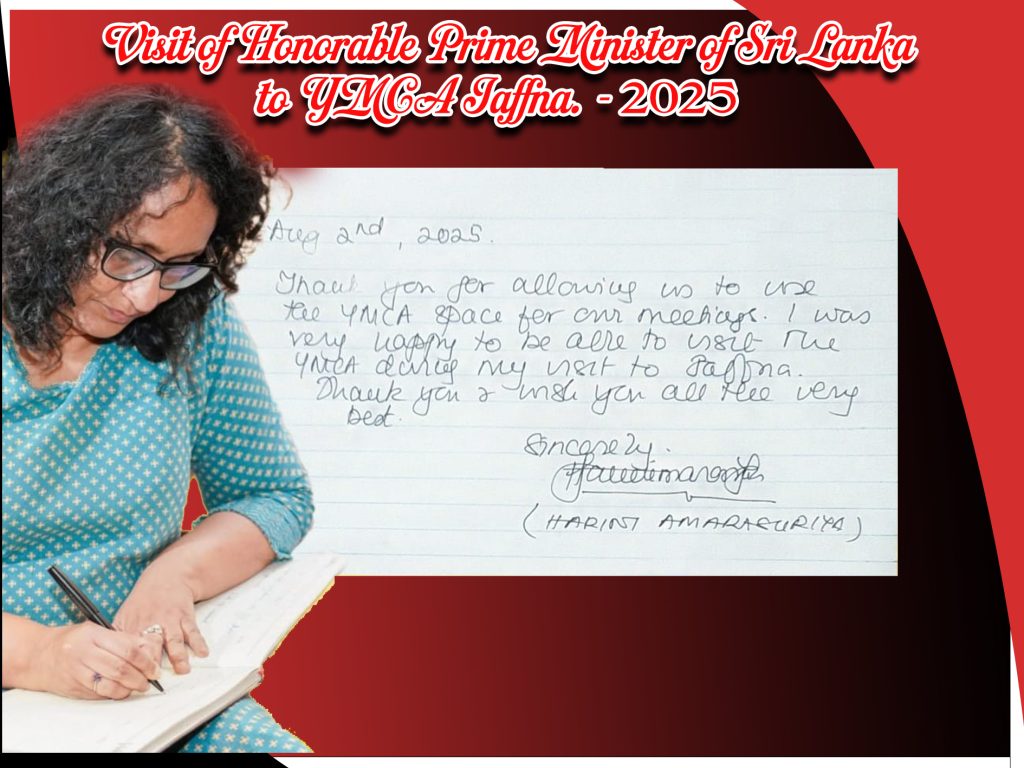 Visit of Honorable Prime Minister of Sri Lanka
to YMCA Jaffna. - 2025
Aug 2nd, 2025.
Thank you for allowing us to use
the YMCA space for our meetings. I was
very happy to be able to visit the
YMCA during my visit to Jaffna.
Thank you & wish you all the very
best.
Sincerely.
(HARINI AMARASURIYA)